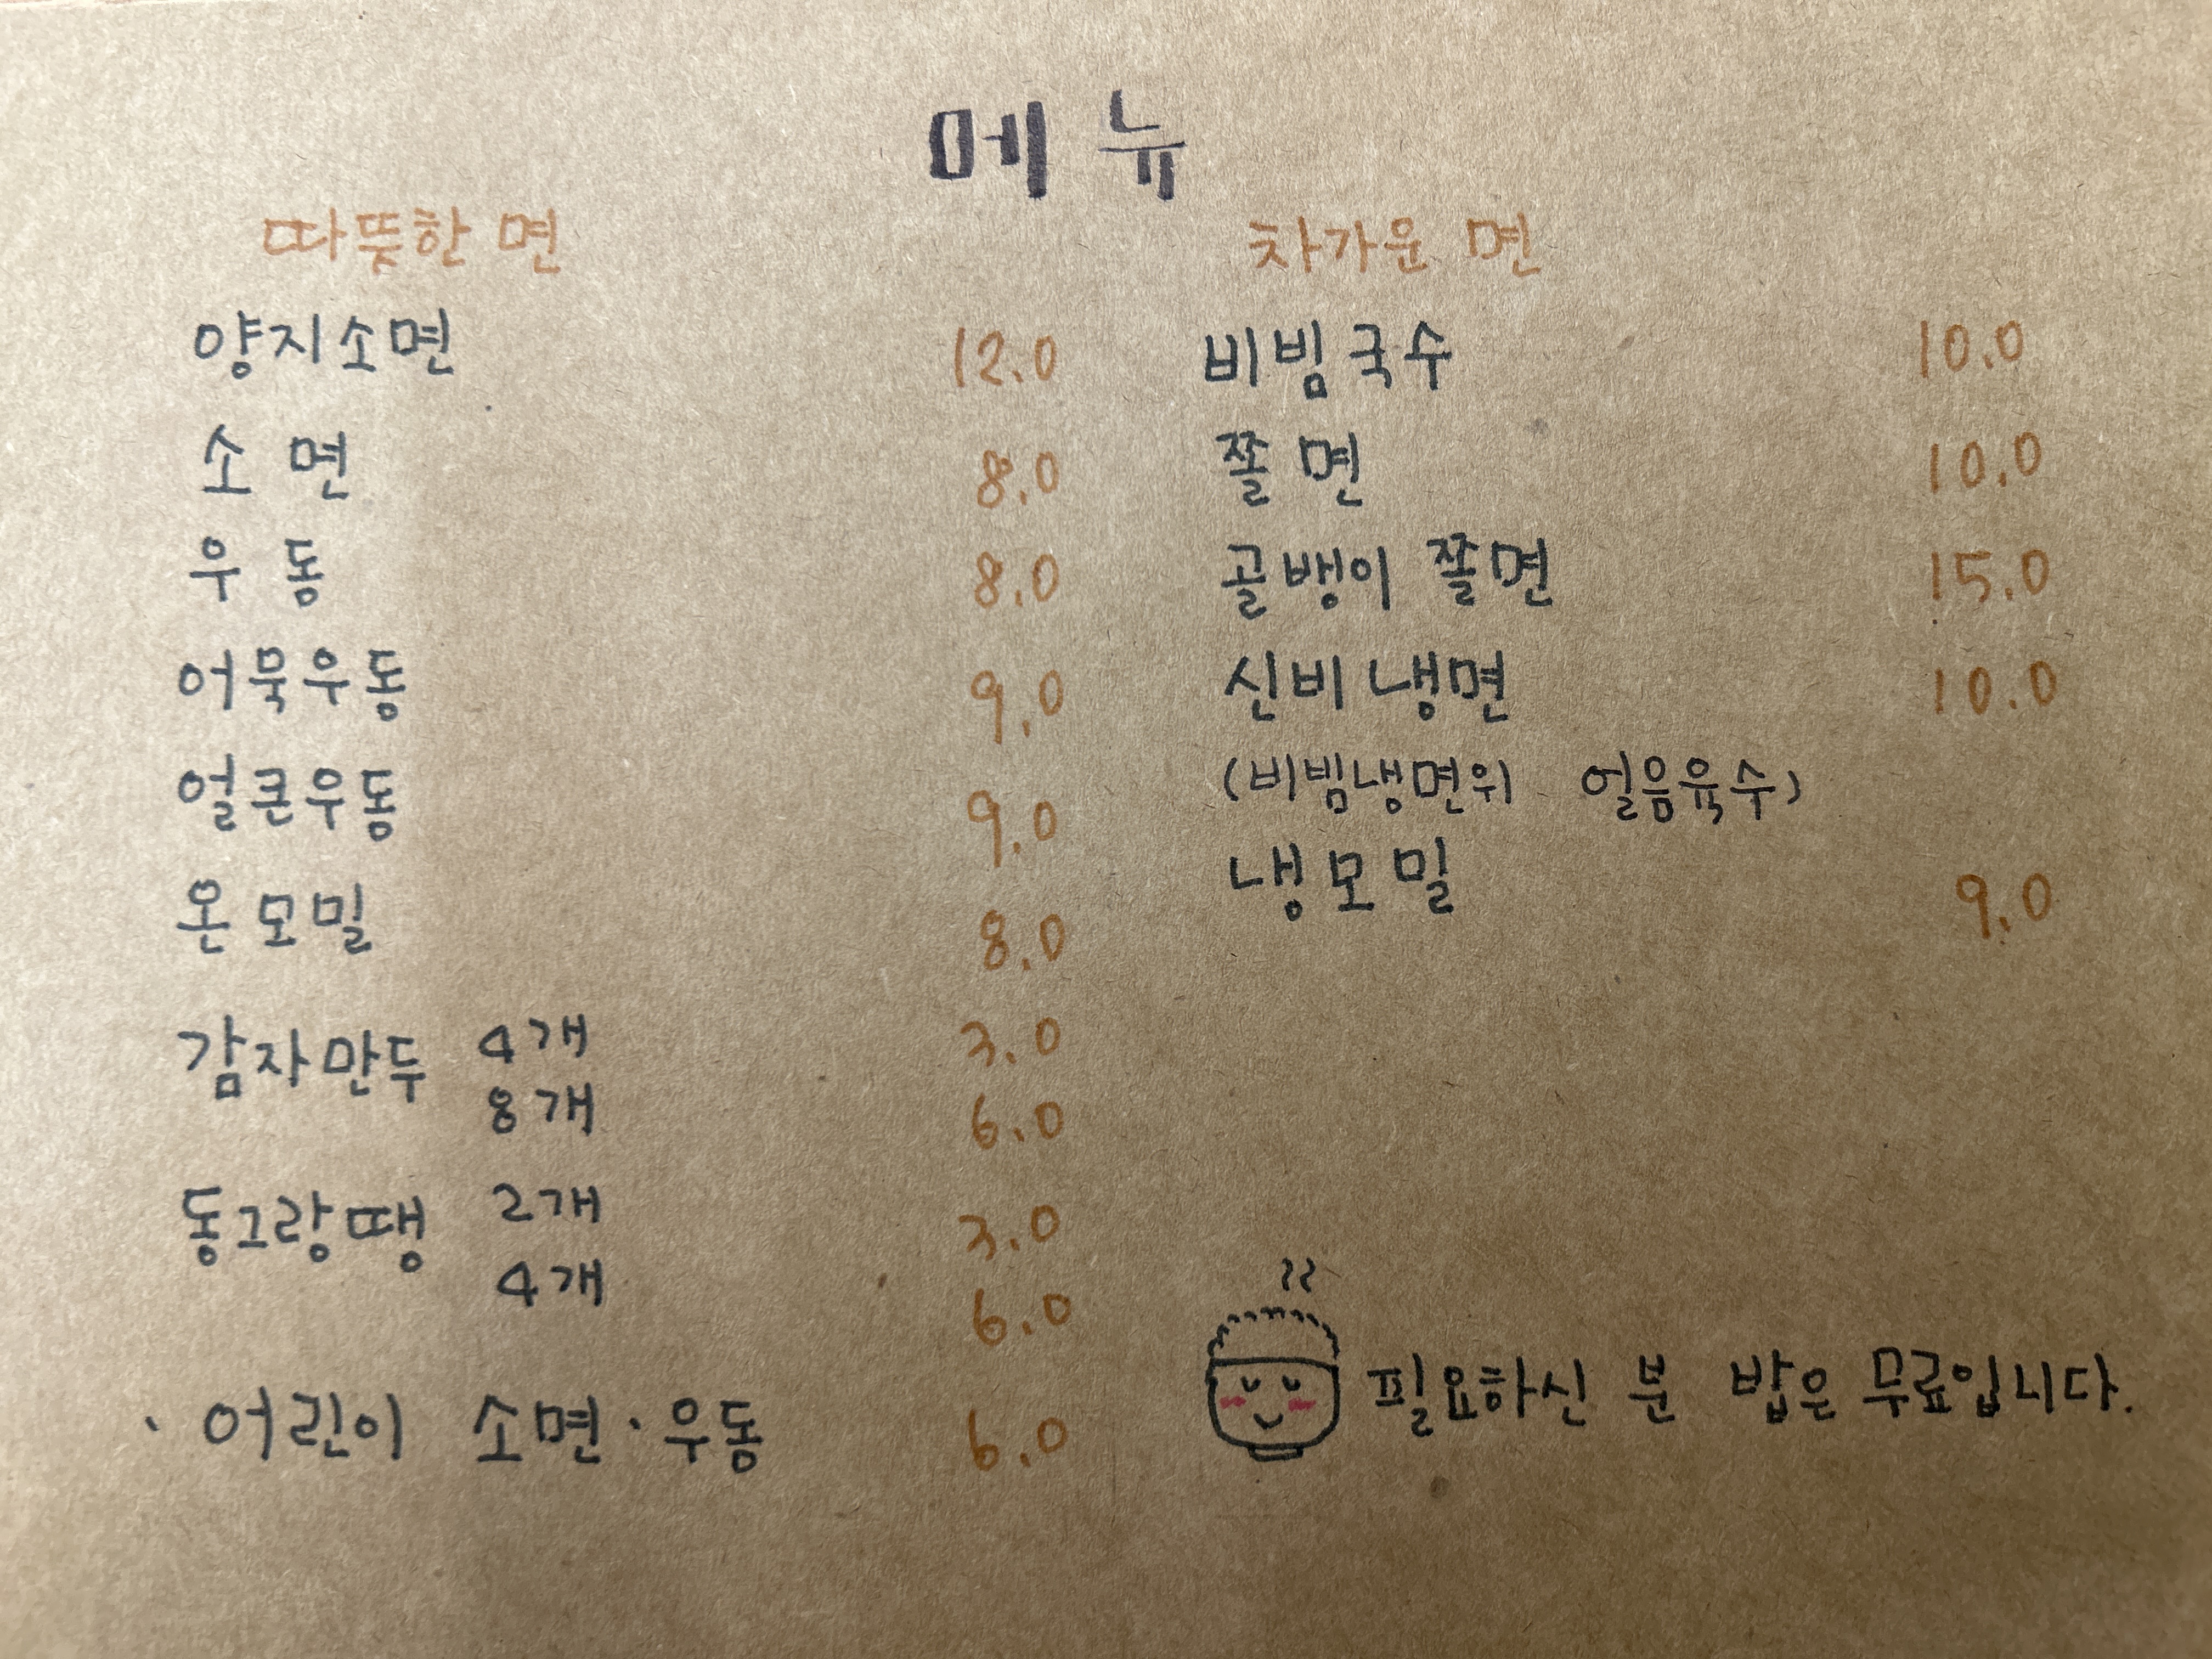 메뉴
따뜻한 면
양지소면 12.0
소면 8.0
우동 8.0
어묵우동 9.0
얼큰우동 9.0
온모밀 8.0
감자만두 4개 3.0
8개 6.0
동그랑땡 2개 3.0
4개 6.0
· 어린이 소면·우동 6.0
차가운 면
비빔국수 10.0
쫄면 10.0
골뱅이 쫄면 15.0
신비냉면 10.0
(비빔냉면위 얼음육수)
냉모밀 9.0
필요하신 분 밥은 무료입니다.